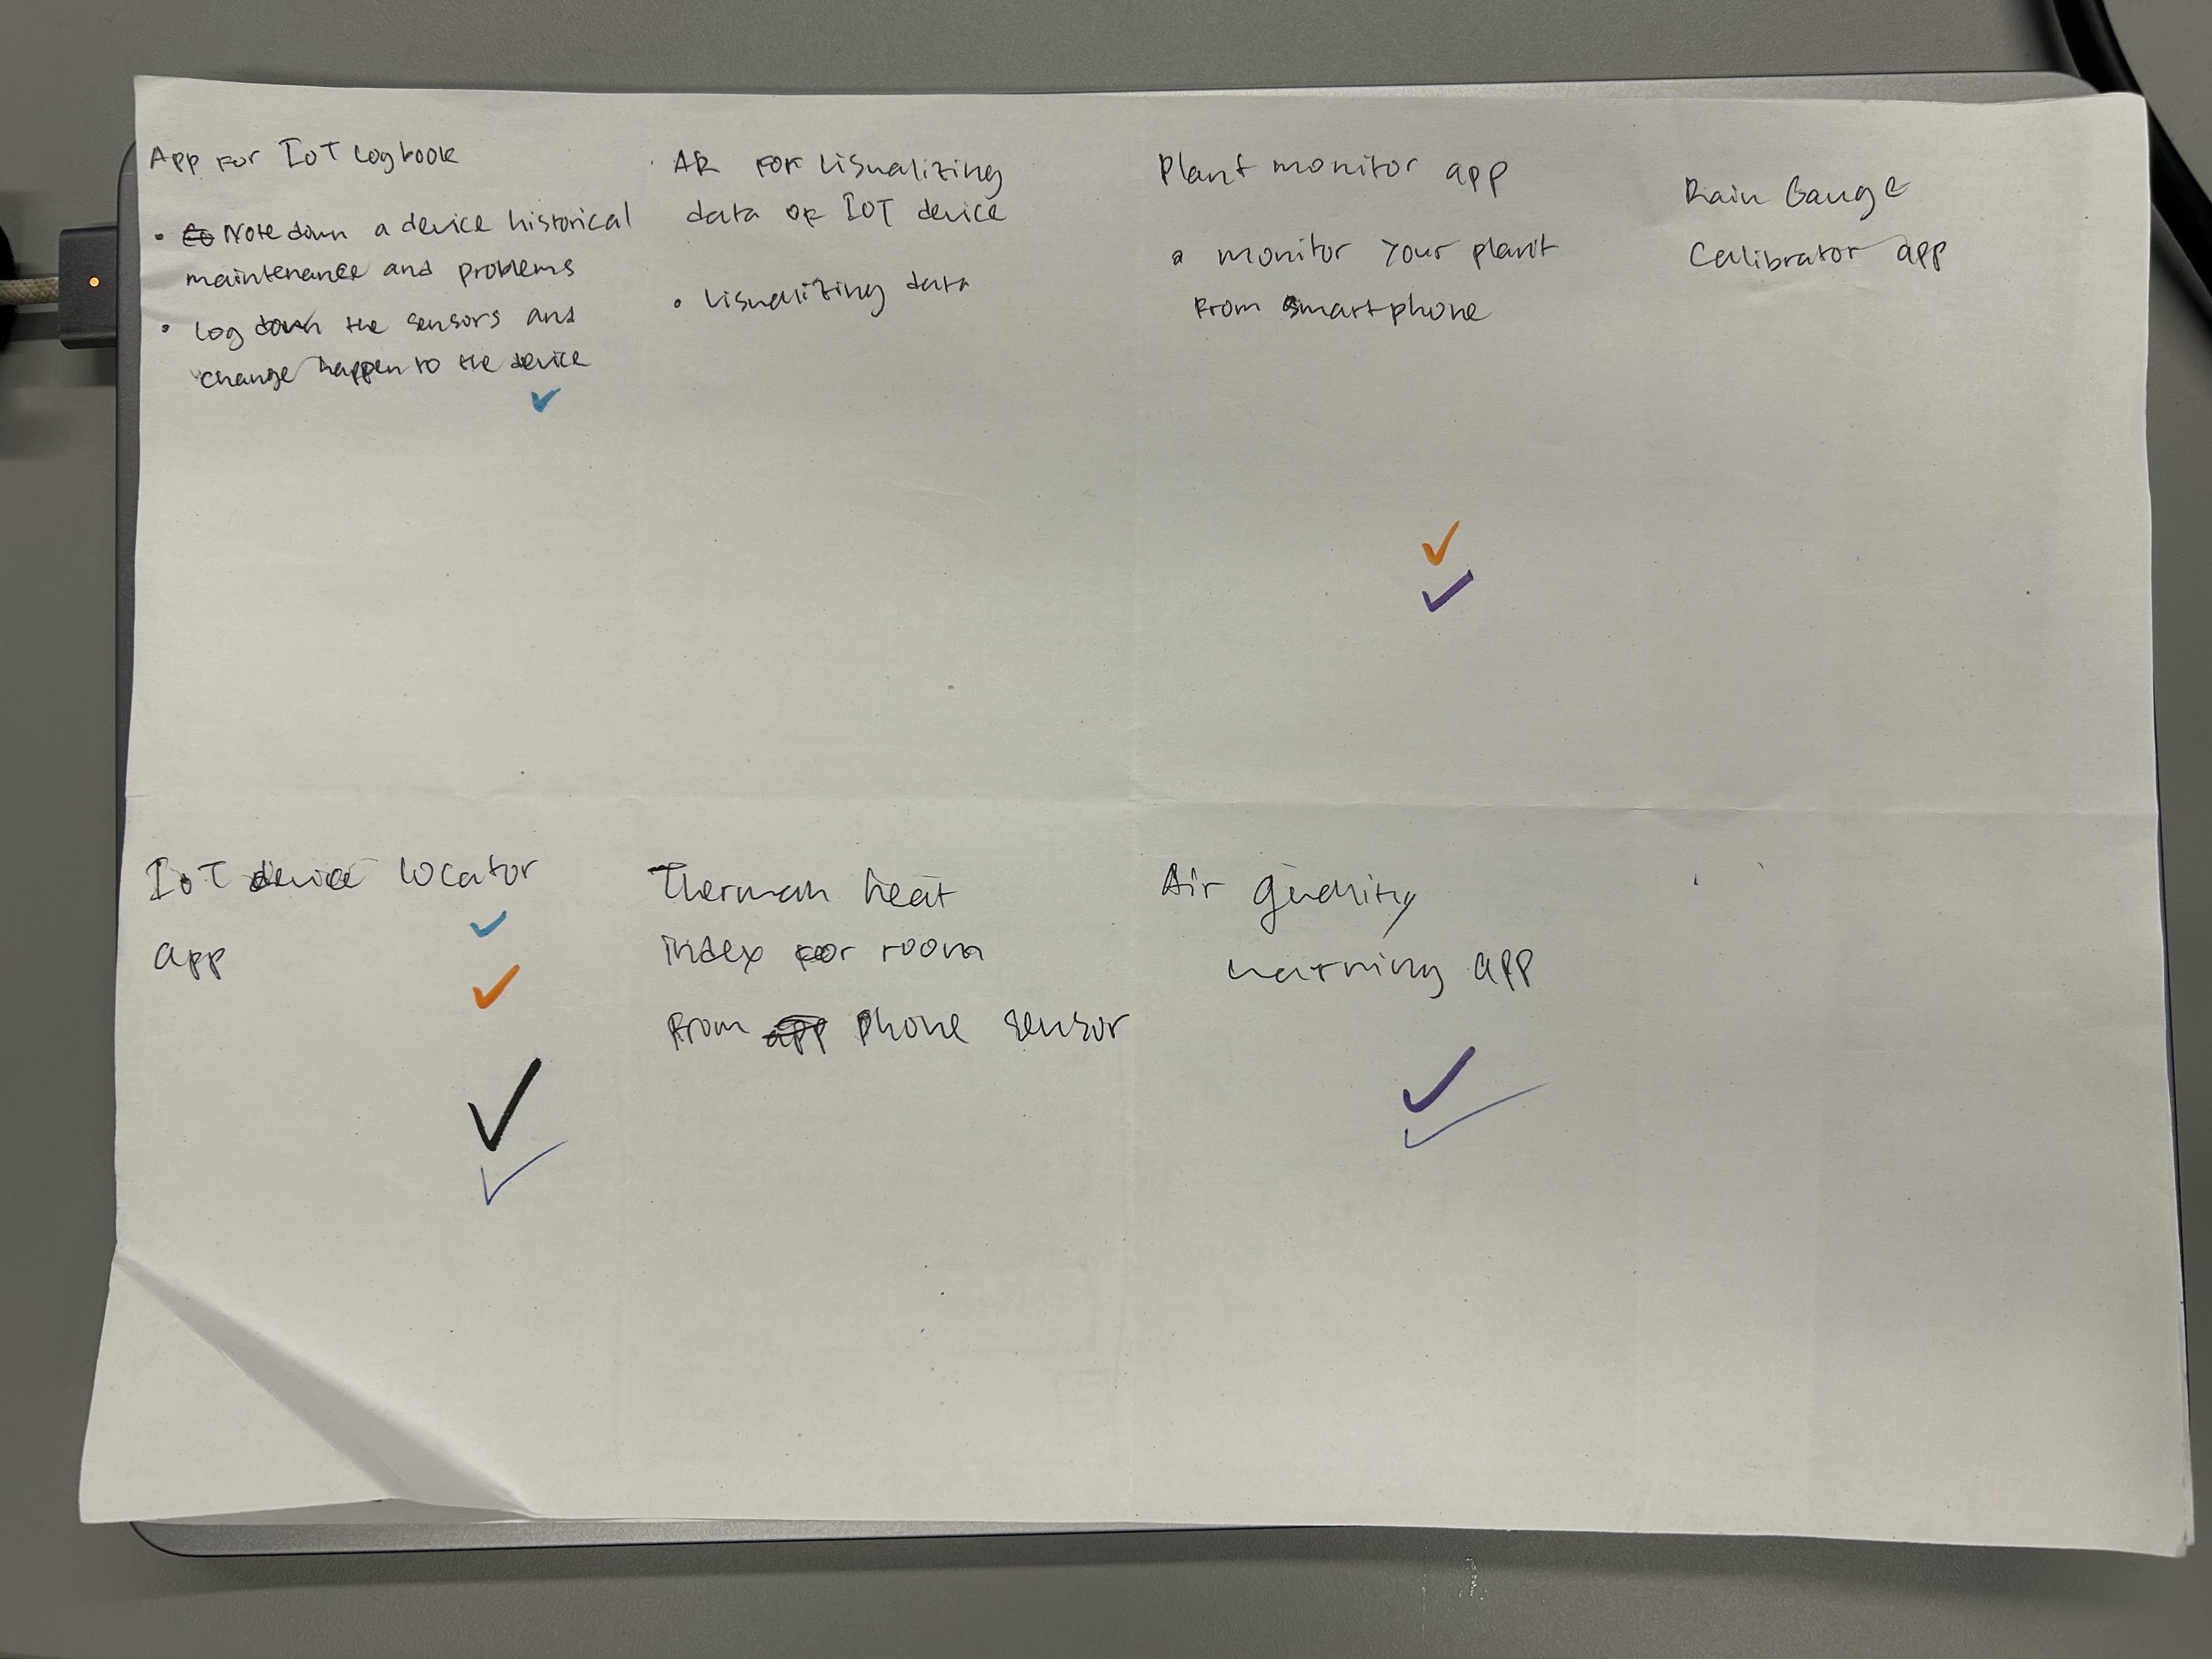 App for IoT Logbook
• Note down a device historical
maintenance and problems
• Log down the sensors and
change happen to the device
AR for visualizing
data of IoT device
• visualizing data
Plant monitor app
• monitor your plant
from smartphone
Rain Gauge
Calibrator app
IoT device locator
app
Thermal heat
index for room
from app phone sensor
Air quality
warning app